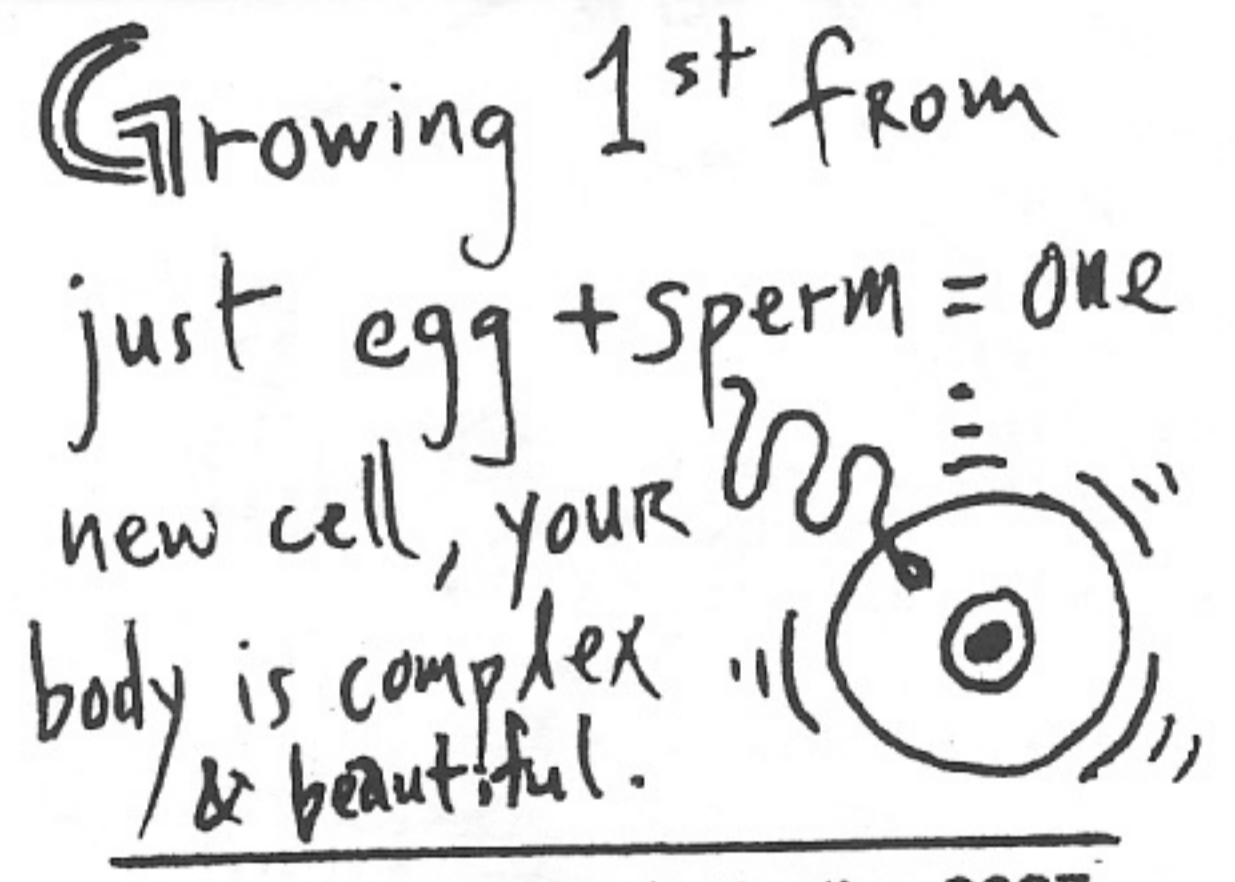 Growing 1st from
just egg + sperm = one
new cell, your
body is complex
& beautiful.